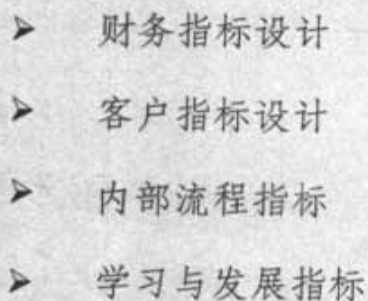 ➢ 财务指标设计
➢ 客户指标设计
➢ 内部流程指标
➢ 学习与发展指标